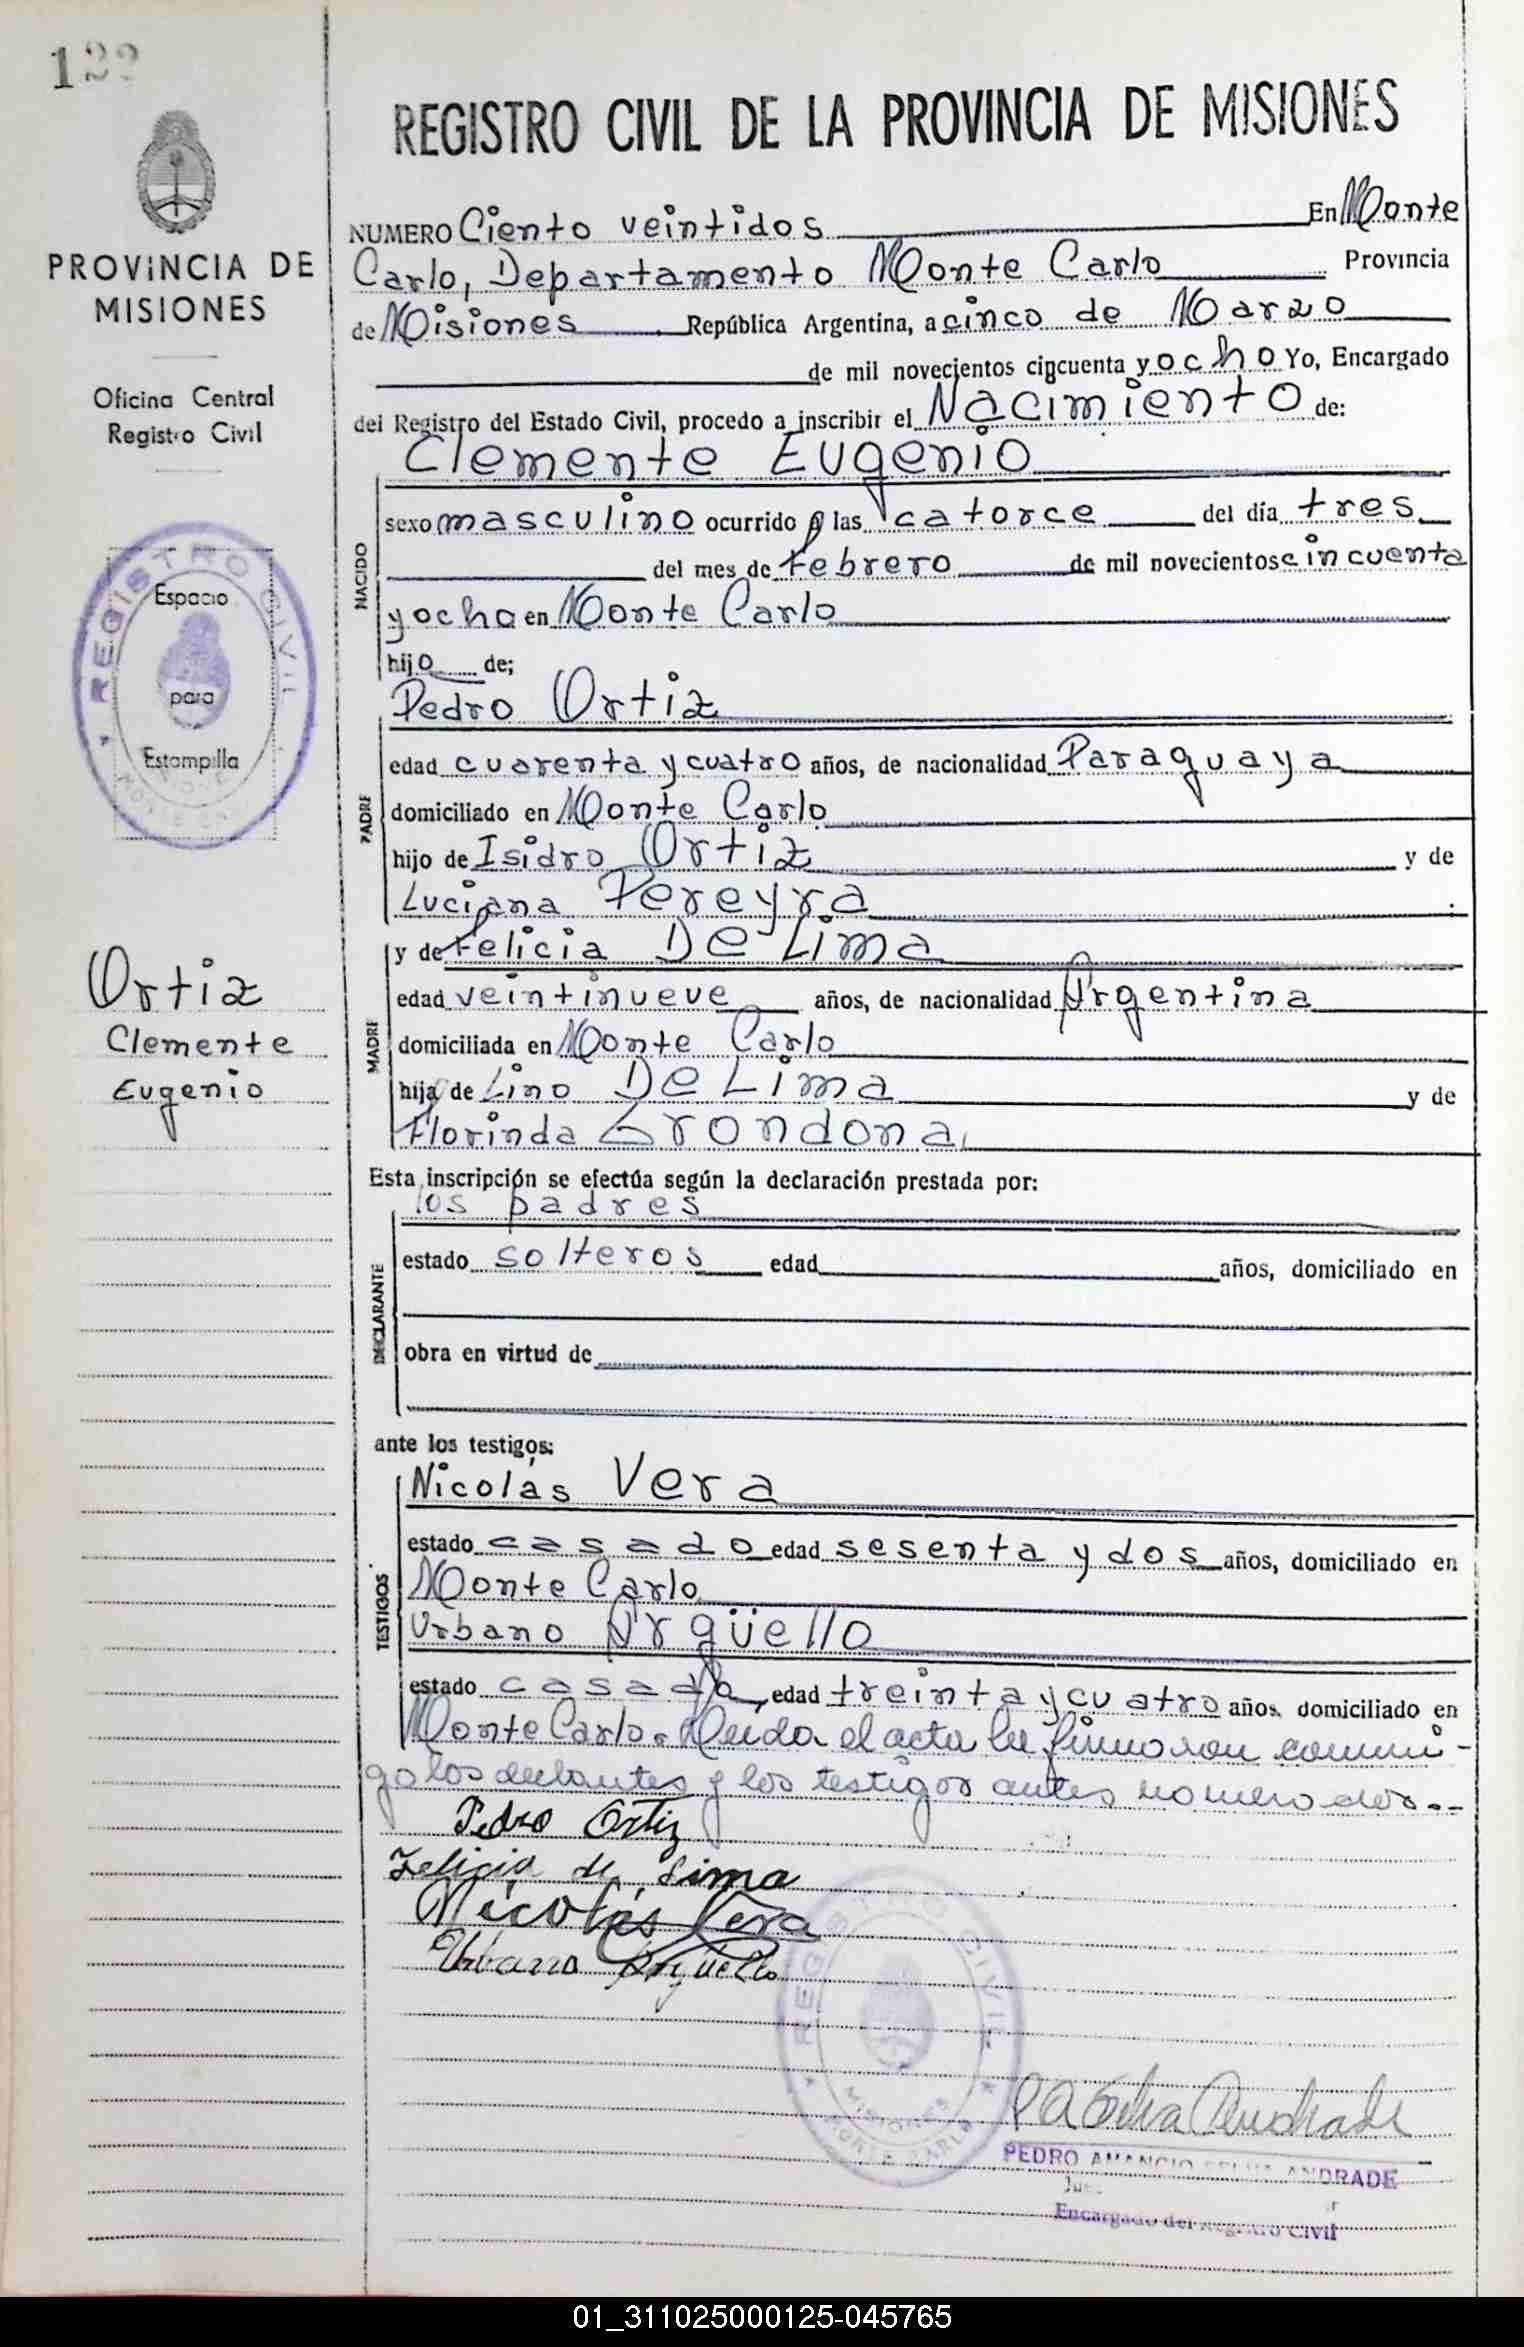 122
PROVINCIA DE
MISIONES
Oficina Central
Registro Civil
REGISTRO CIVIL
Espacio
para
Estampilla
Ortiz
Clemente
Eugenio
REGISTRO CIVIL DE LA PROVINCIA DE MISIONES
NUMERO Ciento veintidos En Monte
Carlo, Departamento Monte Carlo Provincia
de Misiones República Argentina, a cinco de Marzo
de mil novecientos cincuenta y ocho Yo, Encargado
del Registro del Estado Civil, procedo a inscribir el Nacimiento de:
Clemente Eugenio
NACIDO
sexo masculino ocurrido a las catorce del día tres
del mes de Febrero de mil novecientos cincuenta
y ocho en Monte Carlo
hijo de;
Pedro Ortiz
PADRE
edad cuarenta y cuatro años, de nacionalidad Paraguaya
domiciliado en Monte Carlo
hijo de Isidro Ortiz y de
Luciana Pereyra
y de Felicia De Lima
MADRE
edad veintinueve años, de nacionalidad Argentina
domiciliada en Monte Carlo
hija de Lino De Lima y de
Florinda Grondona
Esta inscripción se efectúa según la declaración prestada por:
los padres
DECLARANTE
estado solteros edad años, domiciliado en
obra en virtud de
ante los testigos:
Nicolás Vera
TESTIGOS
estado casado edad sesenta y dos años, domiciliado en
Monte Carlo
Urbano Argüello
estado casado, edad treinta y cuatro años, domiciliado en
Monte Carlo. Leída el acta la firmaron conmi-
go los declarantes y los testigos antes nombrados.--
Pedro Ortiz
Felicia de Lima
Nicolás Vera
Urbano Argüello
REGISTRO CIVIL
MISIONES
MONTE CARLO
P A Selva Andrade
PEDRO AMANCIO SELVA ANDRADE
Encargado del Registro Civil
01_311025000125-045765